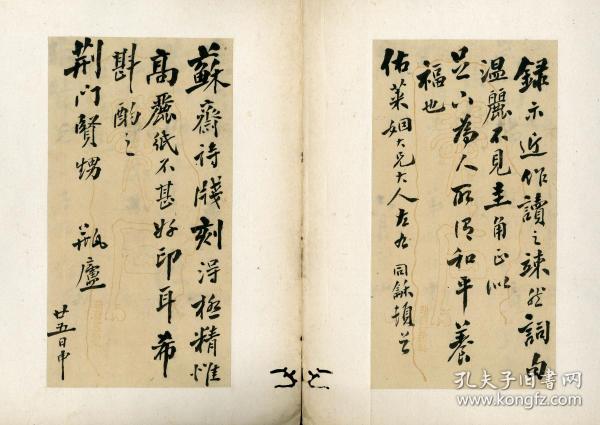 錄示近作讀之竦然詞句
溫麗不見圭角正以
足下為人所謂和平養
福也
佑萊姻大兄大人左右 同龢頓首
蘇齋詩牋刻得極精惟
高麗紙不甚好印耳希
斟酌之
荆门賢甥 瓶廬
廿五日申
孔夫子旧书网
www.kongfz.com